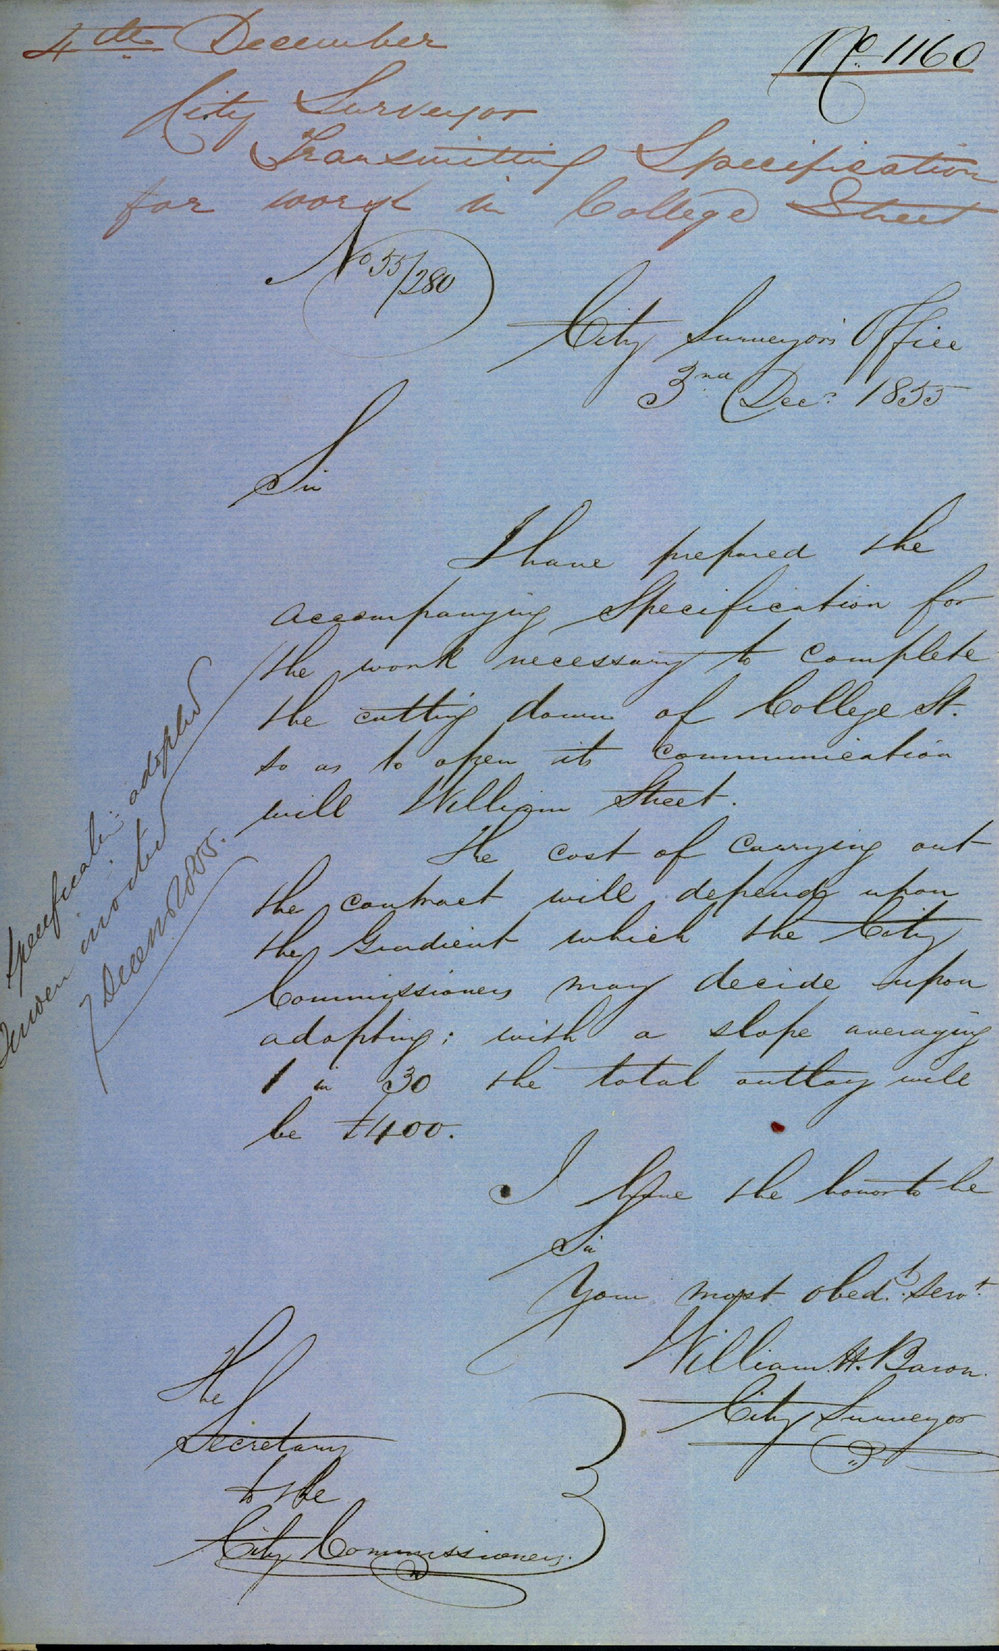 4th December
No. 1160
City Surveyor
Transmitting Specification
for work in College Street
No 55/280
City Surveyor's Office
3nd Decr. 1855
Sir
I have prepared the
accompanying Specification for
the work necessary to complete
the cutting down of College St.
so as to open its communication
will William Street.
The cost of carrying out
the contract will depend upon
the Gradient which the City
Commissioners may decide upon
adopting; with a slope averaging
1 in 30 the total outlay will
be £400.
I have the honor to be
Sir
Your most obedt. Servt.
William H. Baron.
City Surveyor
The
Secretary
to the
City Commissioners.
Specification adopted
Tenders invited
7 Decem 1855.